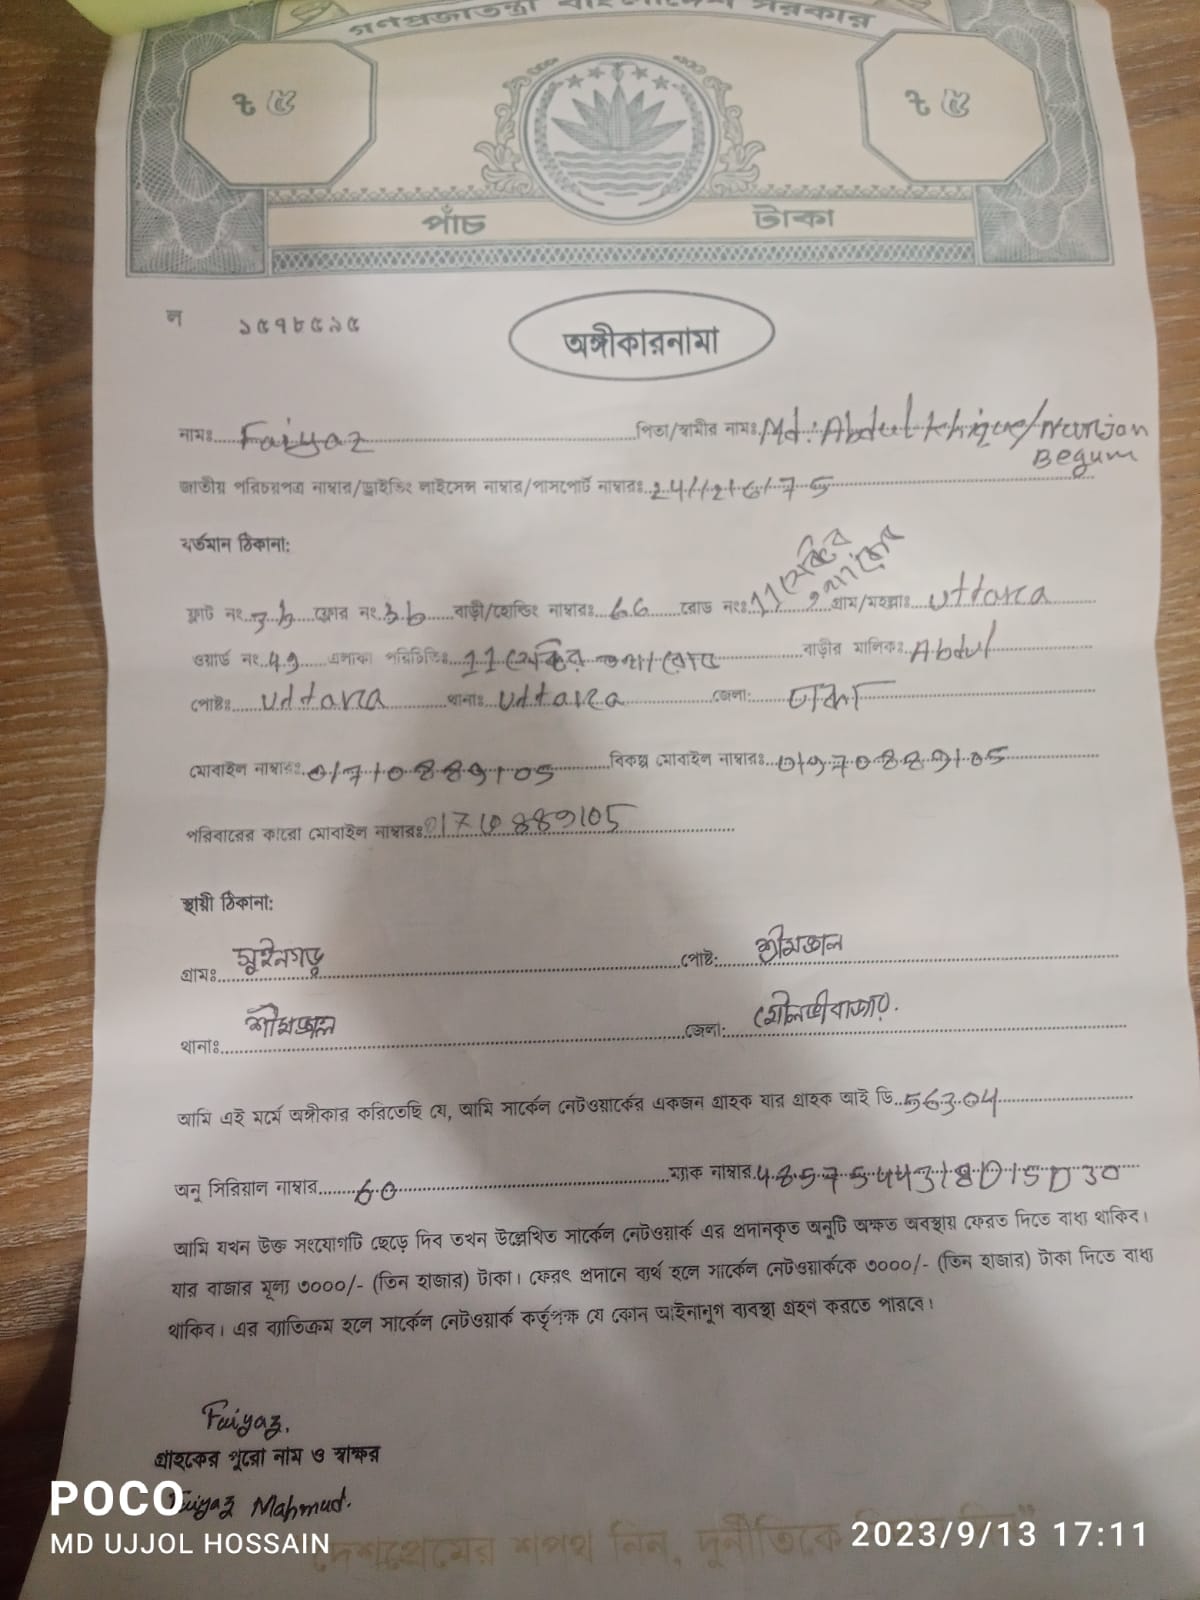 গণপ্রজাতন্ত্রী বাংলাদেশ সরকার
৳ ৫ ৳ ৫
পাঁচ টাকা
ল ১৫৭৮৫৯৫
অঙ্গীকারনামা
নামঃ Faiyaz পিতা/স্বামীর নামঃ Md: Abdul Khique/Nurjan
Begum
জাতীয় পরিচয়পত্র নাম্বার/ড্রাইভিং লাইসেন্স নাম্বার/পাসপোর্ট নাম্বারঃ
বর্তমান ঠিকানা:
ফ্লাট নং ফ্লোর নং 3b বাড়ী/হোল্ডিং নাম্বারঃ 66 রোড নংঃ গ্রাম/মহল্লাঃ uttara
ওয়ার্ড নং 49 এলাকা পরিচিতিঃ 11 বাড়ীর মালিকঃ Abdul
পোষ্টঃ uttara থানাঃ uttara জেলা: ঢাকা
মোবাইল নাম্বারঃ 01710889105 বিকল্প মোবাইল নাম্বারঃ 01970889105
পরিবারের কারো মোবাইল নাম্বারঃ 01710889105
স্থায়ী ঠিকানা:
গ্রামঃ পোষ্ট: শ্রীমঙ্গল
থানাঃ শ্রীমঙ্গল জেলা: মৌলভীবাজার.
আমি এই মর্মে অঙ্গীকার করিতেছি যে, আমি সার্কেল নেটওয়ার্কের একজন গ্রাহক যার গ্রাহক আই ডি 56304
অনু সিরিয়াল নাম্বার 60 ম্যাক নাম্বার 4857544318D15D30
আমি যখন উক্ত সংযোগটি ছেড়ে দিব তখন উল্লেখিত সার্কেল নেটওয়ার্ক এর প্রদানকৃত অনুটি অক্ষত অবস্থায় ফেরত দিতে বাধ্য থাকিব।
যার বাজার মূল্য ৩০০০/- (তিন হাজার) টাকা। ফেরৎ প্রদানে ব্যর্থ হলে সার্কেল নেটওয়ার্ককে ৩০০০/- (তিন হাজার) টাকা দিতে বাধ্য
থাকিব। এর ব্যাতিক্রম হলে সার্কেল নেটওয়ার্ক কর্তৃপক্ষ যে কোন আইনানুগ ব্যবস্থা গ্রহণ করতে পারবে।
Faiyaz.
গ্রাহকের পুরো নাম ও স্বাক্ষর
Faiyaz Mahmud.
দেশপ্রেমের শপথ নিন, দুর্নীতিকে
POCO
MD UJJOL HOSSAIN
2023/9/13 17:11